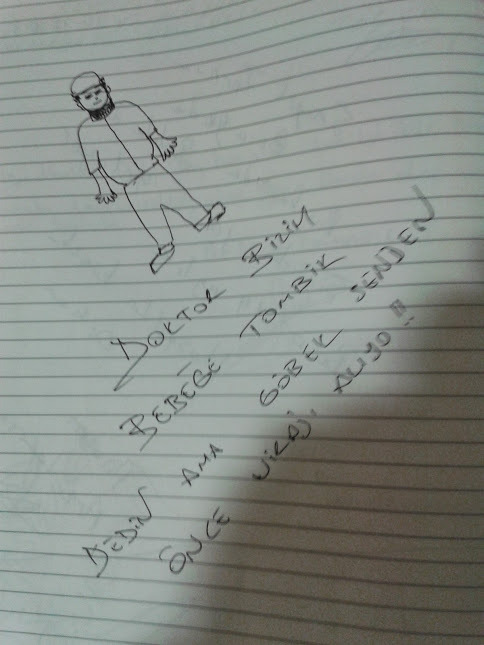 DOKTOR BİZİM
BEBEĞE TOMBİK
DEDİN AMA GÖBEK SENDEN
ÖNCE VİRAJI ALIYO!!